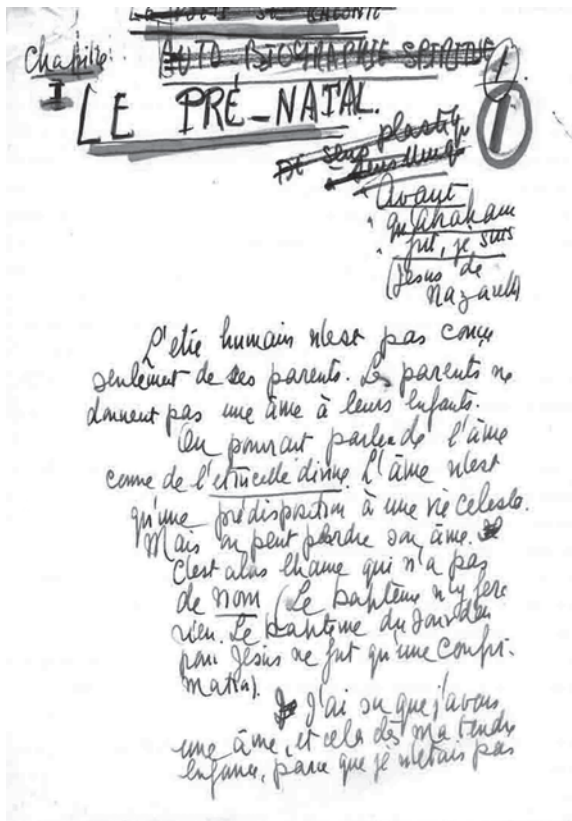 LE POETE SE RACONTE
Chapitre AUTO-BIOGRAPHIE SPIRITUELLE 1.
I LE PRÉ-NATAL. 1
plastique
De sens
Avant
qu'Abraham
fut, je suis
(Jesus de
Nazareth)
L'etre humain n'est pas conçu
seulement de ses parents. Les parents ne
donnent pas une âme à leurs enfants.
On pourrait parler de l'âme
comme de l'etincelle divine. L'âme n'est
qu'une prédisposition à une vie celeste.
Mais on peut perdre son âme.
C'est alors l'homme qui n'a pas
de nom (Le baptême n'y fere
rien. Le baptême du Jourdan
pour Jésus ne fut qu'une confir-
mation).
J'ai su que j'avais
une âme, et cela dès ma tendre
enfance, parce que je n'etais pas